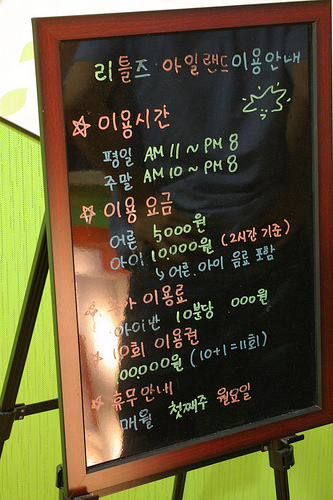 리틀즈·아일랜드 이용안내
☆ 이용시간
평일 AM 11 ~ PM 8
주말 AM 10 ~ PM 8
☆ 이용 요금
어른 5000원
아이 10,000원 (2시간 기준)
↳ 어른. 아이 음료 포함
이용료
아이반 10분당 000원
☆ 10회 이용권
00000원 (10+1=11회)
☆ 휴무안내
매월 첫째주 월요일